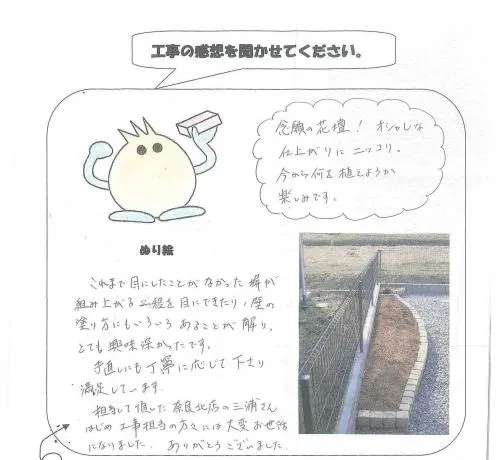 工事の感想を聞かせてください。
念願の花壇! オシャレな
仕上がりにニッコリ。
今から何を植えようか
楽しみです。
ぬり絵
これまで目にしたことがなかった塀が
組み上がる工程を目にできたり、壁の
塗り方にもいろいろあることが解り、
とても興味深かったです。
手直しにも丁寧に応じて下さり
満足しています。
担当して頂した奈良北店の三浦さん
はじめ工事担当の方々には大変お世話
になりました。ありがとうございました。